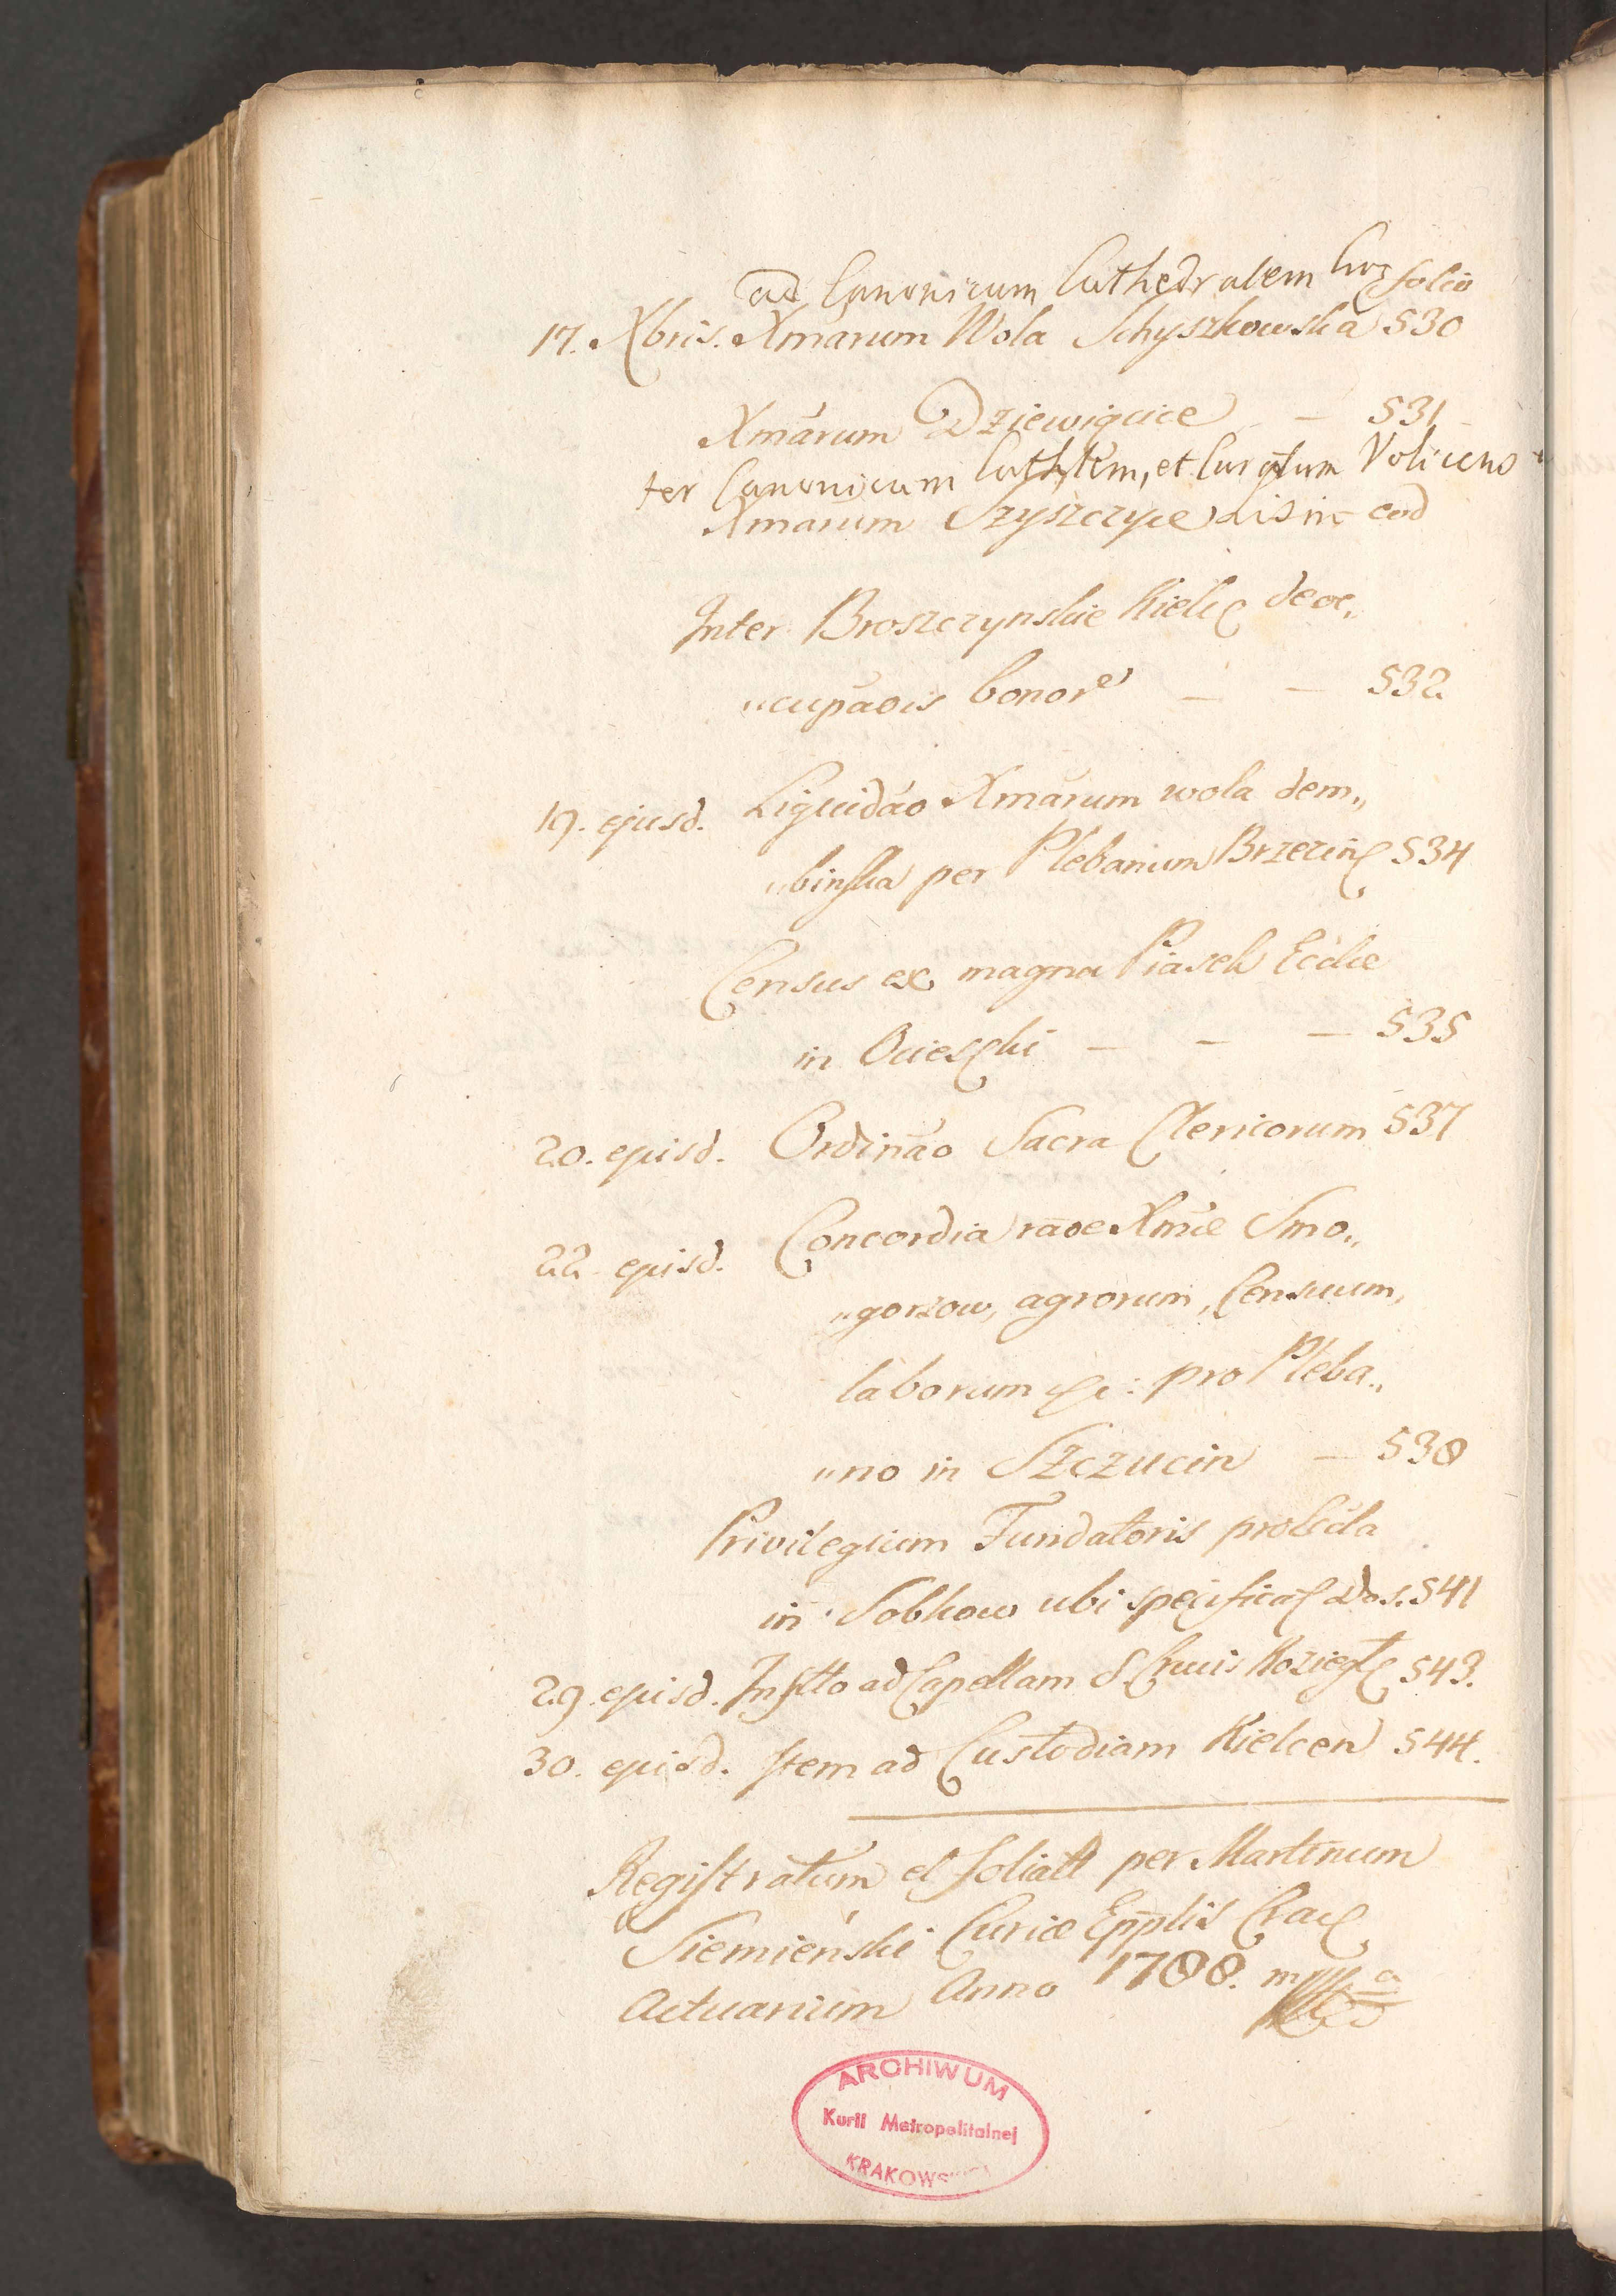 ad Canonicum Cathedralem Crac folio
17. Xbris. Xmarum Wola Schyszkowska 530
Xmarum Dziewięcice — 531
ter Canonicum Cathlem, et Curatum
Xmarum Szyszczyce eod
Inter Broszczynskie Kielc deoc„
„cupaois bonor — — 532
19. ejusd. Liquidao Xmarum wola dem„
„binska per Plebanum Brzezin 534
Census ex magna Piasek Ecclæ
in Ocieseki — — — 535
20. ejusd. Ordinao Sacra Clericorum 537
22. ejusd. Concordia raoe Xmæ Smo„
„gorzow, agrorum, Censuum,
laborum &c: pro Pleba„
„no in Szczucin — 538
Privilegium Fundatoris pro Eccla
in Sobkow ubi specificat dos. 541
29. ejusd. Instto ad Capellam S. Crucis 543.
30. ejusd. Item ad Custodiam Kielcen 544.
Registratum et foliatt per Martinum
Siemieński Curiæ Epplis Crac
Actuarium Anno 1788. mp
ARCHIWUM
Kurii Metropolitalnej
KRAKOWSKIEJ